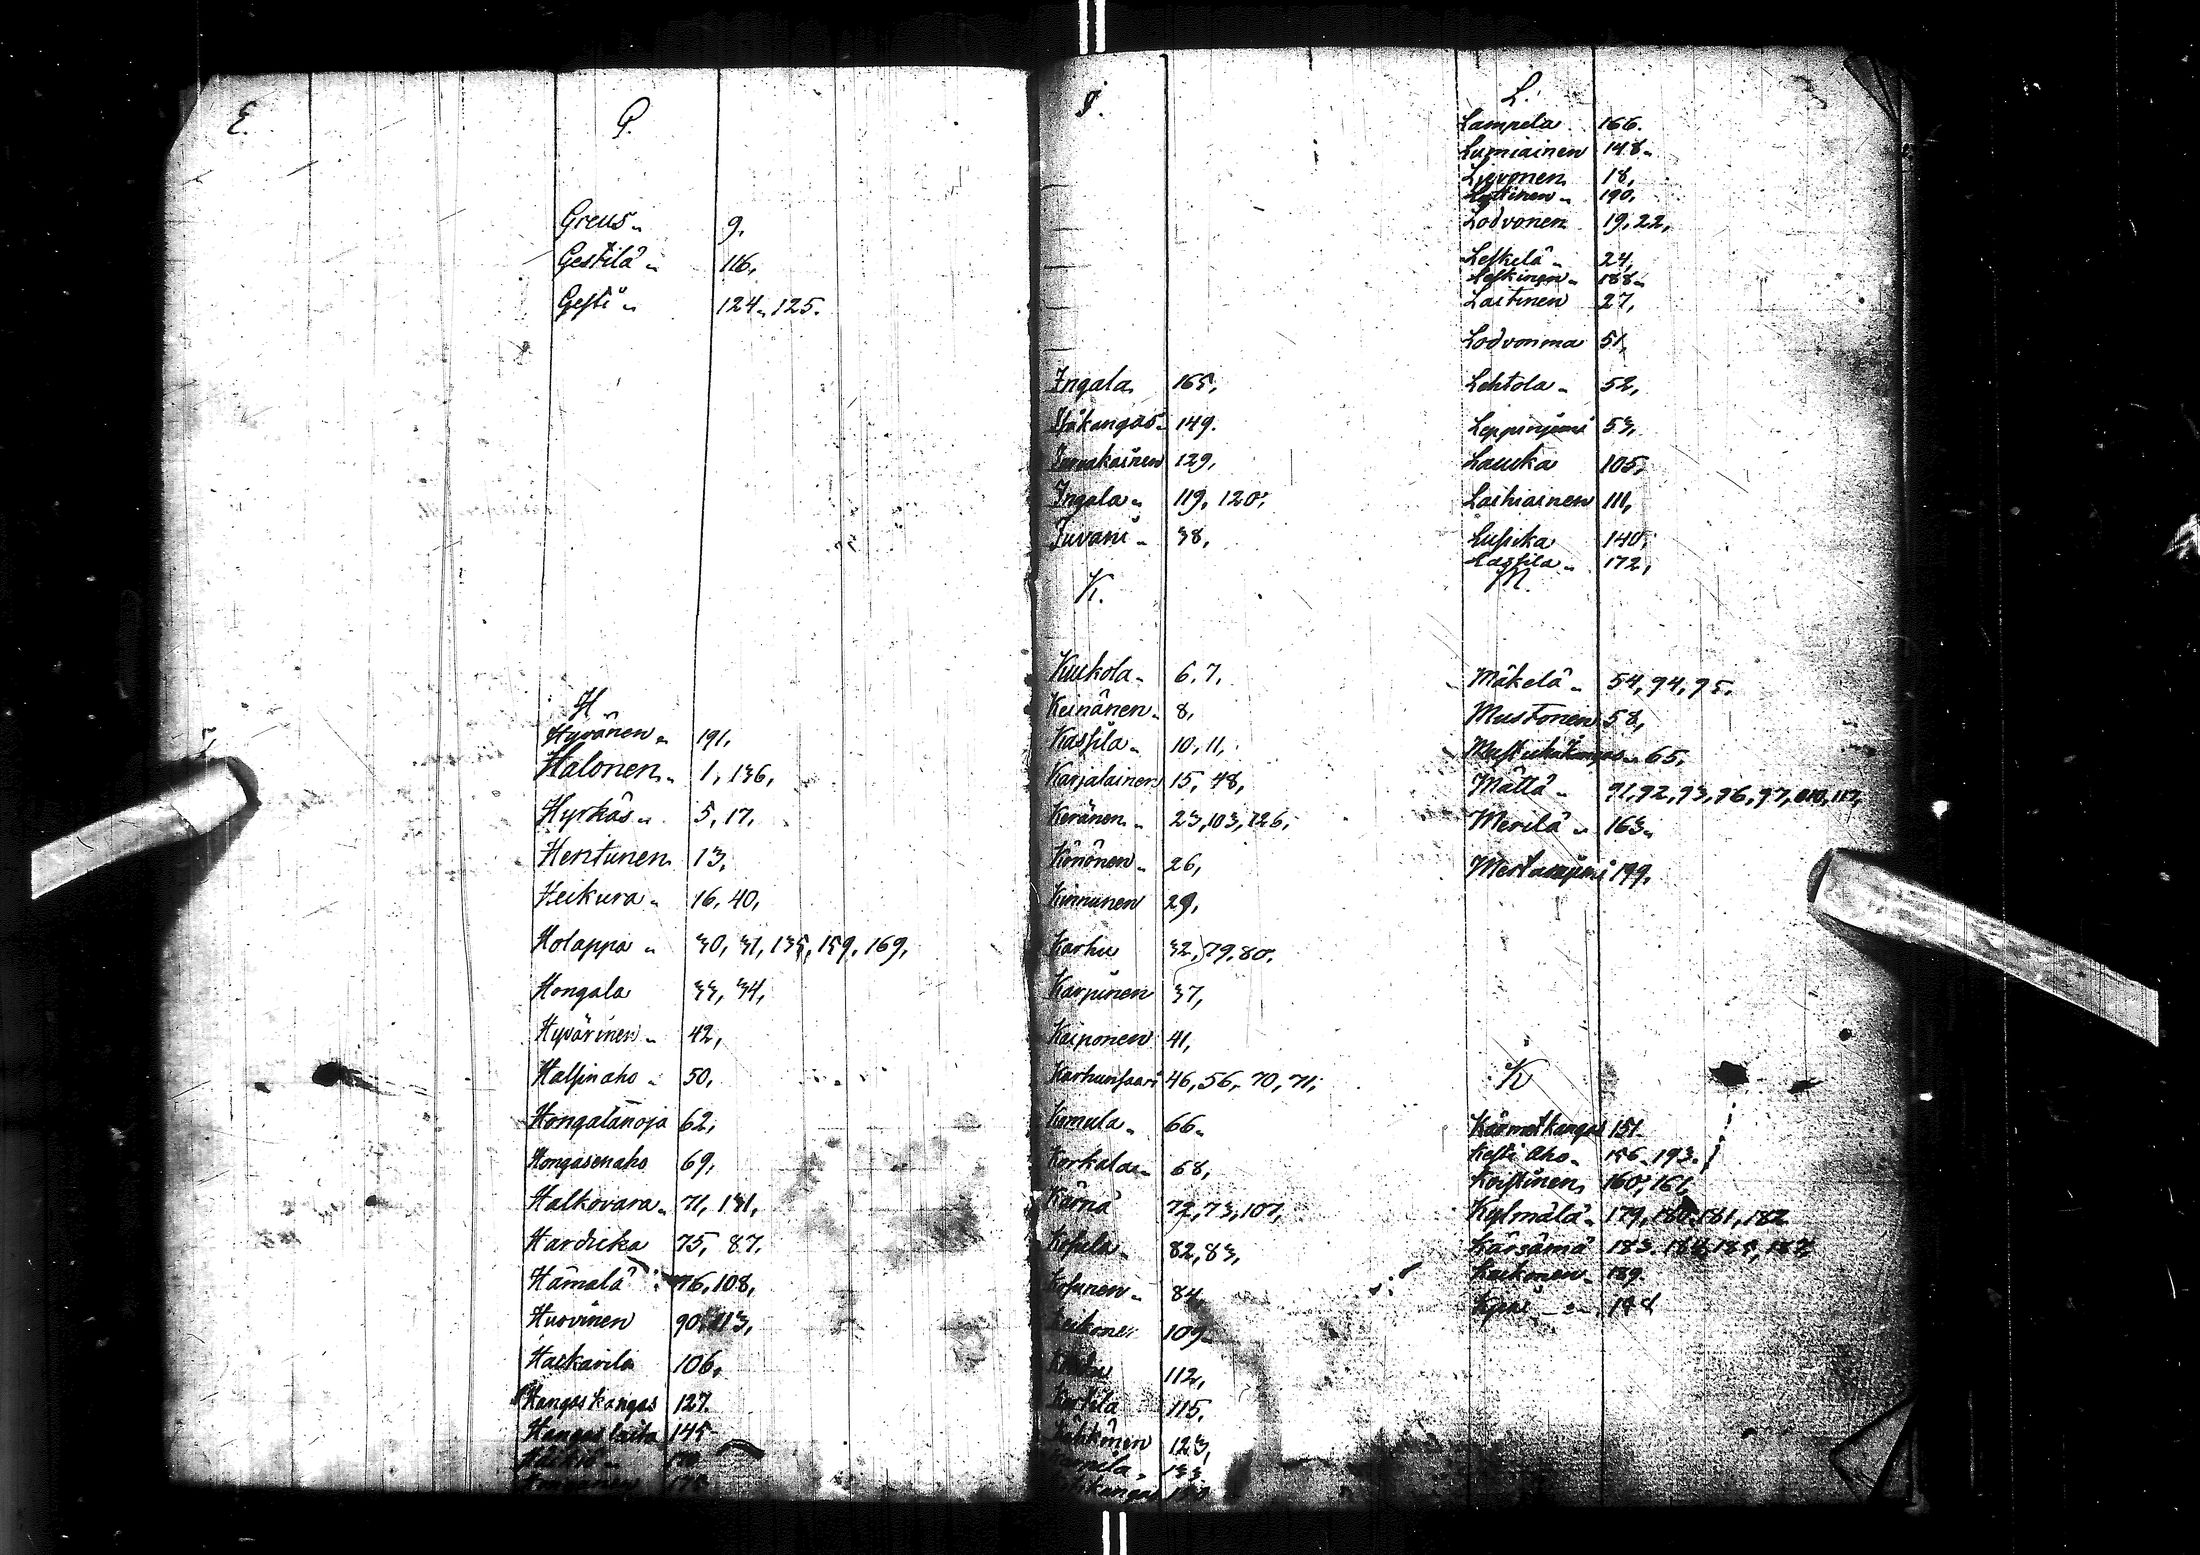 E.
G.
Greus 9.
Gestilä 116,
Gesti 124, 125.
H
Hyvänen 191,
Halonen 1, 136,
Hyrkäs 5, 17,
Hentunen 13,
Heikura 16, 40,
Holappa 30, 31, 135, 159, 169,
Hongala 33, 34,
Hyvärinen 42,
Halsinaho 50,
Hongalanoja 62,
Hongasenaho 69,
Halkovara 71, 131,
Hardicka 75, 87.
Hämälä 76, 108,
Huovinen 90, 113,
Haikarila 106,
Hangaskangas 127.
Hangas 145
I.
Ingala 165,
149.
129,
Ingala 119, 120,
Juvani 38,
K.
Kuckola 6, 7,
Keinänen 8,
Kassila 10, 11,
Karjalainen 15, 48,
Keränen 23, 103, 126,
Könönen 26,
Kinnunen 29,
Karhu 32, 79, 80,
Karpinen 37,
Kaiponen 41,
Karhunsaari 46, 56, 70, 71,
Kemula 66
Korkala 68,
Kärnä 72, 73, 107,
82, 83,
84,
109
112,
115,
123,
133
L.
Lampela 166.
Lumiainen 148
Lyvonen 18,
190,
Lodvonen 19, 22,
Leskelä 24,
Leskinen 188
Laitinen 27,
Lodvonma 51,
Lehtola 52,
Leppiniemi 53,
Laucka 105,
Laihiainen 111,
Lusicka 140,
Lassila 172,
M.
Mäkelä 54, 94, 95,
Mustonen 58,
65,
Mättä 91, 92, 93, 96, 97, 117,
Merilä 163
199.
K
Käärmetkangas 151
Kesti Aho 156, 193
Koistinen 160, 161,
Kylmälä 179, 180, 181, 182
Kärsämä 183,
Kaikonen 189.